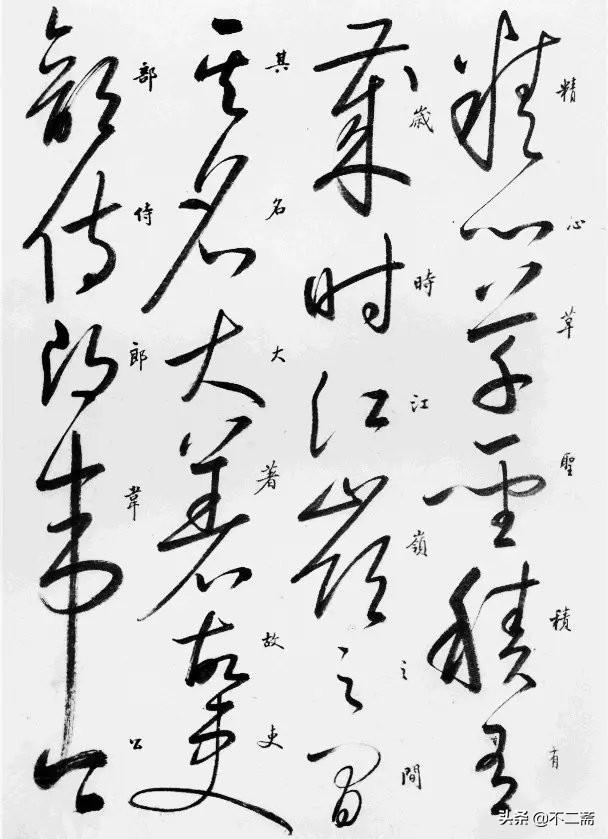 精心草聖積有
歲時江嶺之間
其名大著故吏
部侍郎韋公
头条 @不二斋